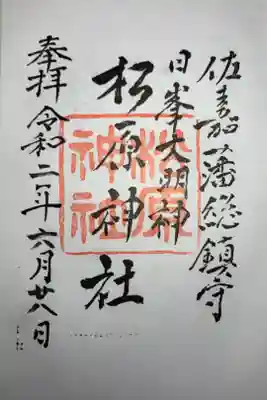 佐嘉藩総鎮守
日峯大明神
松原神社
奉拝 令和二年六月廿八日
松原
神社